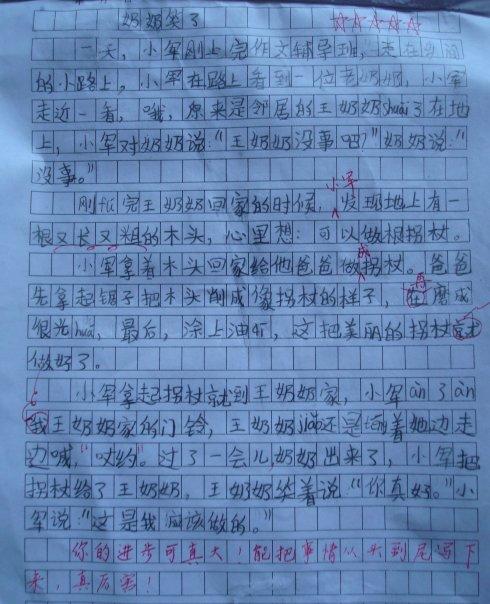 奶奶笑了
一天，小军刚上完作文辅导班，走在
的小路上，小军在路上看到一位老奶奶，小军
走近一看，哦，原来是邻居的王奶奶shuāi了在地
上，小军对奶奶说：“王奶奶没事吧？”奶奶说：“
没事。”
刚fú完王奶奶回家的时候，小军发现地上有一
根又长又粗的木头，心里想：可以做根拐杖。
小军拿着木头回家给他爸爸做成拐杖。爸爸
先拿起锯子把木头削成像拐杖的样子，在再磨成
很光huá，最后，涂上油qī，这把美丽的拐杖就
做好了。
小军拿起拐杖就到王奶奶家，小军àn了àn
我王奶奶家的门铃，王奶奶jiǎo还是着她边走
边喊，“哎哟”。过了一会儿，奶奶出来了，小军把
拐杖给了王奶奶，王奶奶笑着说：“你真好。”小
军说：“这是我应该做的。”
你的进步可真大！能把事情从头到尾写下
来，真厉害！